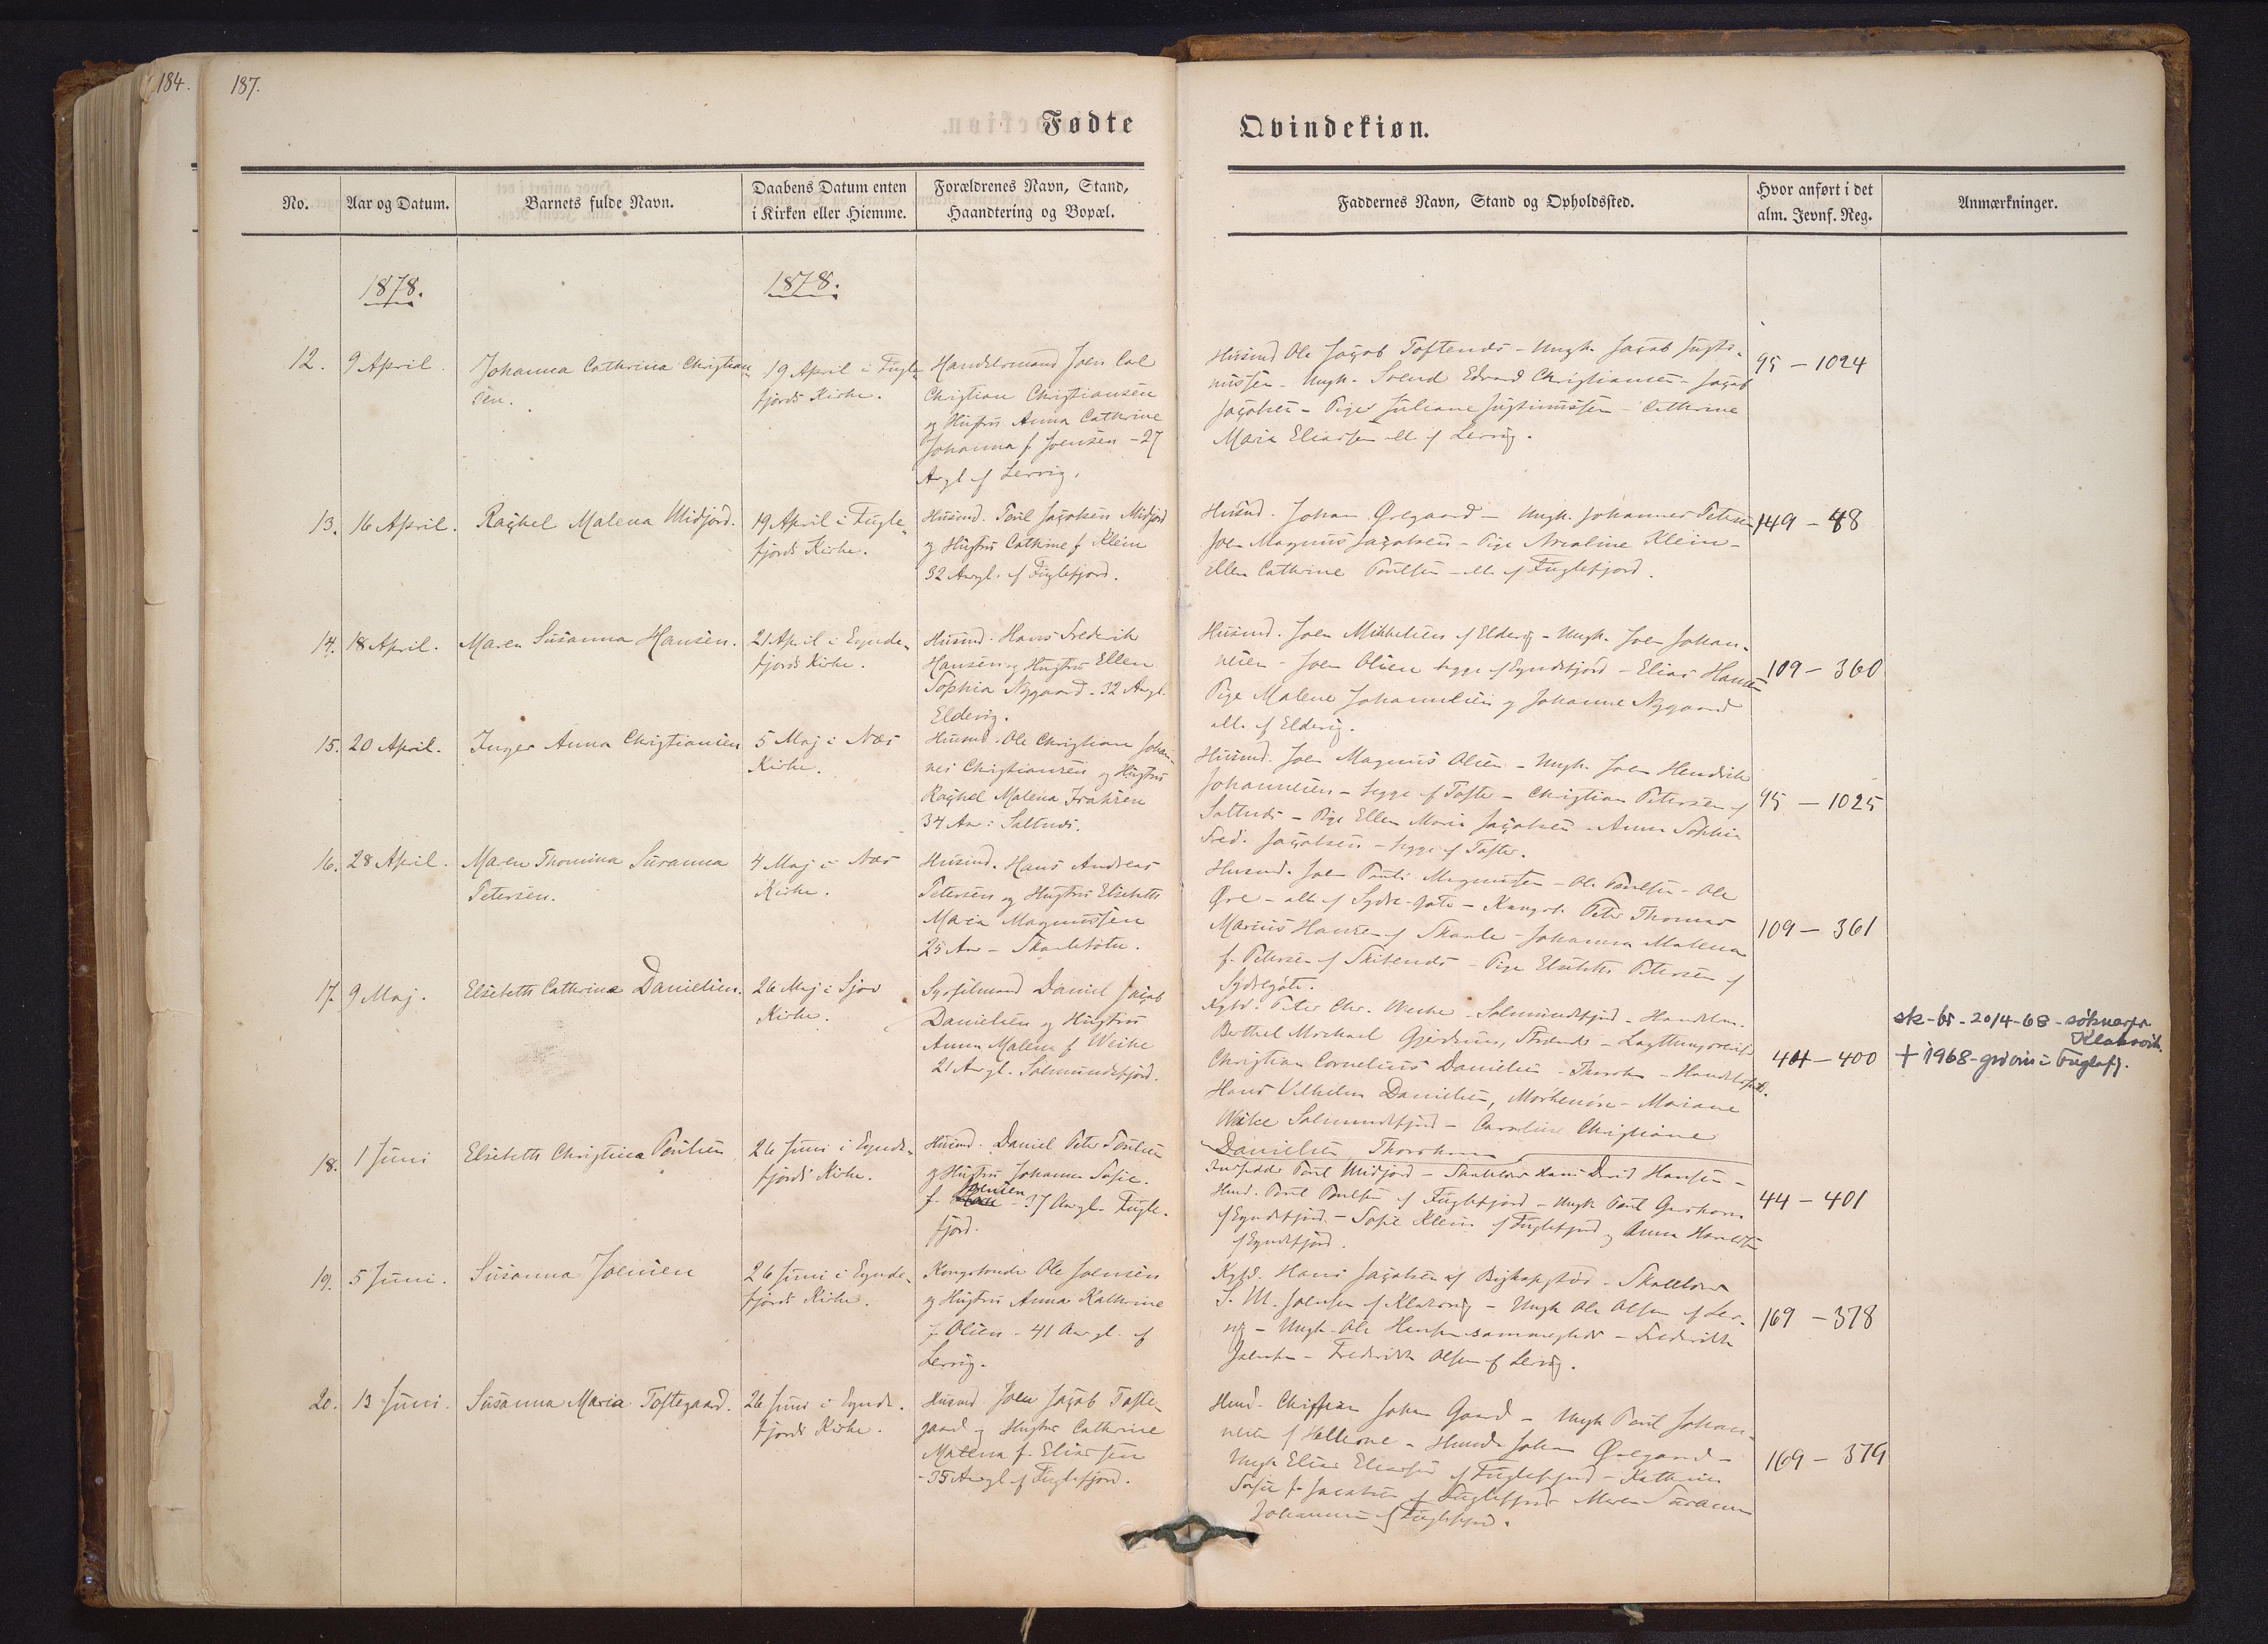 184.
187.
Fødte
Qvindekiøn.
No.
Aar og Datum.
Barnets fulde Navn.
Daabens Datum enten
i Kirken eller Hiemme.
Forældrenes Navn, Stand,
Haandtering og Bopæl.
Faddernes Navn, Stand og Opholdssted.
Hvor anført i det
alm. Jevnf. Reg.
Anmærkninger.
1878.
1878.
12.
9 April.
Johanna Cathrina Christian
sen.
19 April i Fugle
fjords Kirke.
Handelsmand Joen Carl
Christian Christiansen
og Hustru Anna Cathrine
Johanna f. Joensen - 27
Aar gl. af Lervig.
Husmd Ole Jacob Toftends - Ungk. Jacob Justi-
nussen - Ungk. Svend Edvard Christiansen - Jacob
Jacobsen - Piger Juliane Justinussen - Cathrine
Maria Eliassen alle af Lervig.
95 - 1024
13.
16 April.
Rachel Malena Midjord.
19 April i Fugle
fjords Kirke.
Husmd. Poul Jacobsen Midjord
og Hustru Cathrine f. Klein
32 Aar gl. af Fuglefjord.
Husmd. Johan Øregaard - Ungk. Johannes Petersen
Joen Magnus Jacobsen - Pige Klein -
Ellen Cathrine Poulsen - alle af Fuglefjord.
149 - 48
14.
18 April.
Maren Susanna Hansen.
21 April i Eynde-
fjords Kirke.
Husmd. Hans Frederik
Hansen og Hustru Ellen
Sophia Nygaard - 32 Aar gl.
Eldevig.
Husmd. Joen Mikkelsen af Eldevig - Ungk. Joen Johan-
nesen - Joen Olsen begge af Eyndefjord - Elias Hansen
Pige Malene Johannesen og Johanne Nygaard
alle af Eldevig.
109 - 360
15.
20 April.
Inger Anna Christiansen
5 Maj i Næs
Kirke.
Husmd. Ole Christian Johan-
nes Christiansen og Hustru
Rachel Malena Isaksen
34 Aar: Saltnæs.
Husmd. Joen Magnus Olsen - Ungk. Joen Hendrik
Johannesen - begge af Tofte - Christian Petersen af
Saltnæs - Pige Ellen Maria Jacobsen - Anna Sophie
Fred. Jacobsen - begge af Tofte.
95 - 1025
16.
28 April.
Maren Thomina Susanna
Petersen.
4 Maj i Næs
Kirke.
Husmd. Hans Andreas
Petersen og Hustru Elsebeth
Maria Magnussen
25 Aar - Skaaletofte.
Husmd. Joen Pauli Magnussen - Ole Poulsen - Ole
Øre - alle af Sydre-Gøte - Kongsb. Peter Thomas
Marius Hansen af Skaale - Johanna Malena
f. Petersen af Skibenæs - Pige Elsebeth Petersen af
Sydregøte.
109 - 361
17.
9 Maj.
Elsebeth Cathrine Danielsen.
26 Maj i Sjov
Kirke.
Sysselmand Daniel Jacob
Danielsen og Hustru
Anna Malena f. Weihe
21 Aar gl. Salmundefjord.
Kgsbd. Peter Chr. Weihe - Salmundefjord - Handelsm.
Berthel Morthael Gjerdum, Strænder - Lagttingsmand
Christian Cornelius Danielsen - Thorshavn -
Hans Vilhelm Danielsen, Morkenøre - Mariane
Weihe Salmundefjord - Caroline Christiane
Danielsen, Thorshavn
44 - 400
sk-br - 20/4-68 - sóknarpr
Klaksvík.
+ 1968 - grivin í Fuglafj.
18.
1 Juni
Elsebeth Christina Poulsen
26 Juni i Eynde-
fjords Kirke.
Husmd. Daniel Peter Poulsen
og Hustru Johanna Sofie
f. Joensen - 37 Aar gl. Fugle-
fjord.
Poul Midjord - Skolelærer Hans David Hansen -
Husmd. Poul Poulsen af Fuglefjord - Ungk. Poul
af Eyndefjord - Sofie Klein af Fuglefjord og Anna
af Eyndefjord.
44 - 401
19.
5 Juni.
Susanna Joensen
26 Juni i Eynde-
fjords Kirke.
Kongsbonde Ole Joensen
og Hustru Anna Kathrine
f. Olsen - 41 Aar gl. af
Lervig.
Kgbd. Hans Jacobsen af Biskopstød - Skolelærer
S. M. Joensen af Klaksvig - Ungk. Ole Olsen af Ler-
vig - Ungk. Ole Hansen sammesteds - Frederikke
Joensen - Frederikke Olsen af Lervig.
169 - 378
20.
13 Juni.
Susanna Maria Toftegaard.
26 Juni i Eynde-
fjords Kirke.
Husmd. Joen Jacob Tofte-
gaard og Hustru Cathrine
Malena f. Eliassen
- 35 Aar gl. af Fuglefjord.
Husmd. Christian Johan Gaard - Ungk. Poul Johan-
nesen af Hellerne - Husmd. Johan Øregaard -
Ungk. Elias Eliassen af Fuglefjord - Kathrine
Sofie f. Jacobsen af Fuglefjord Maren Susanna
Johannesen af Fuglefjord.
169 - 379